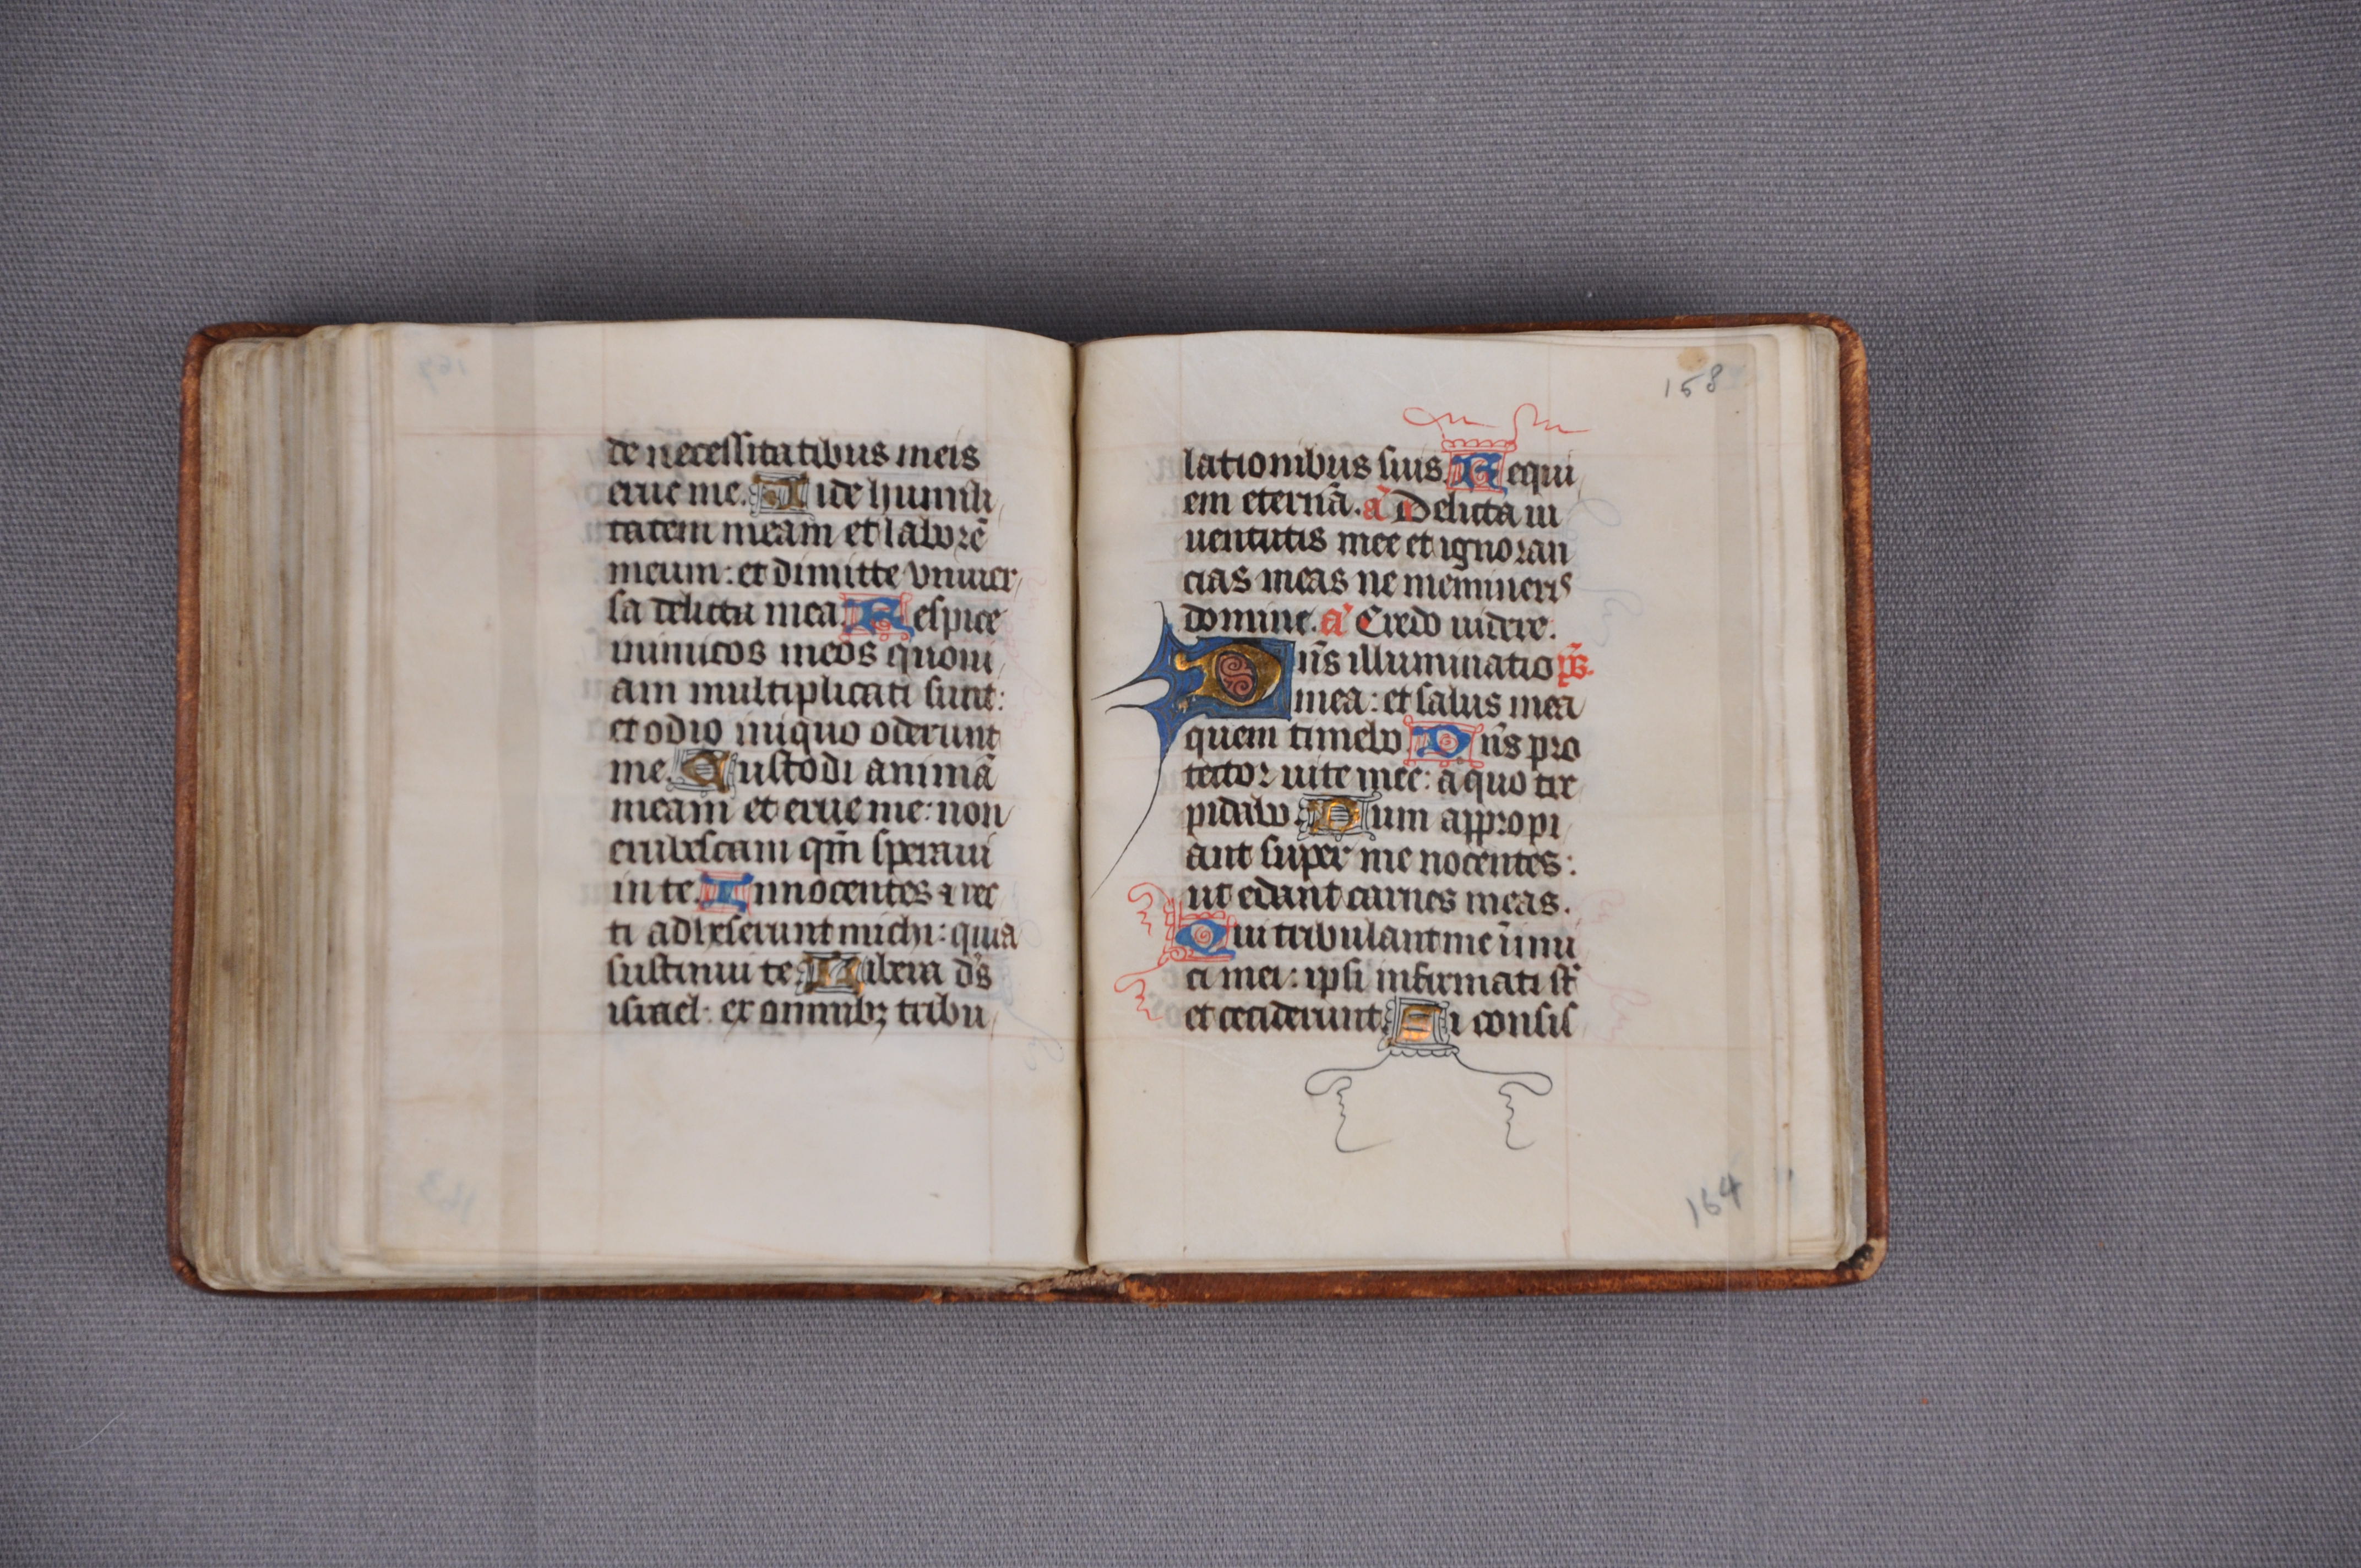 de necessitatibus meis
erue me. Vide humili
tatem meam et laborē
meum: et dimitte vniuer
sa delicta mea. Respice
inimicos meos quoni
am multiplicati sunt:
et odio iniquo oderunt
me. Custodi animā
meam et erue me: non
erubescam qm̄ speraui
in te. Innocentes ⁊ rec
ti adheserunt michi: quia
sustinui te. Libera ds̄
israel: ex omnibꝫ tribu
158
lationibus suis. Requi
em eternā. a᷍ Delicta iu
uentutis mee et ignoran
cias meas ne memineris
domine. a᷍ Credo uidere.
Dn̄s illuminatio ps̄.
mea: et salus mea
quem timebo. Dn̄s pro
tector uite mee: a quo tre
pidabo. Dum appropi
ant super me nocentes:
ut edant carnes meas.
Qui tribulant me inimi
ci mei: ipsi infirmati st̄
et ceciderunt. Si consis
164